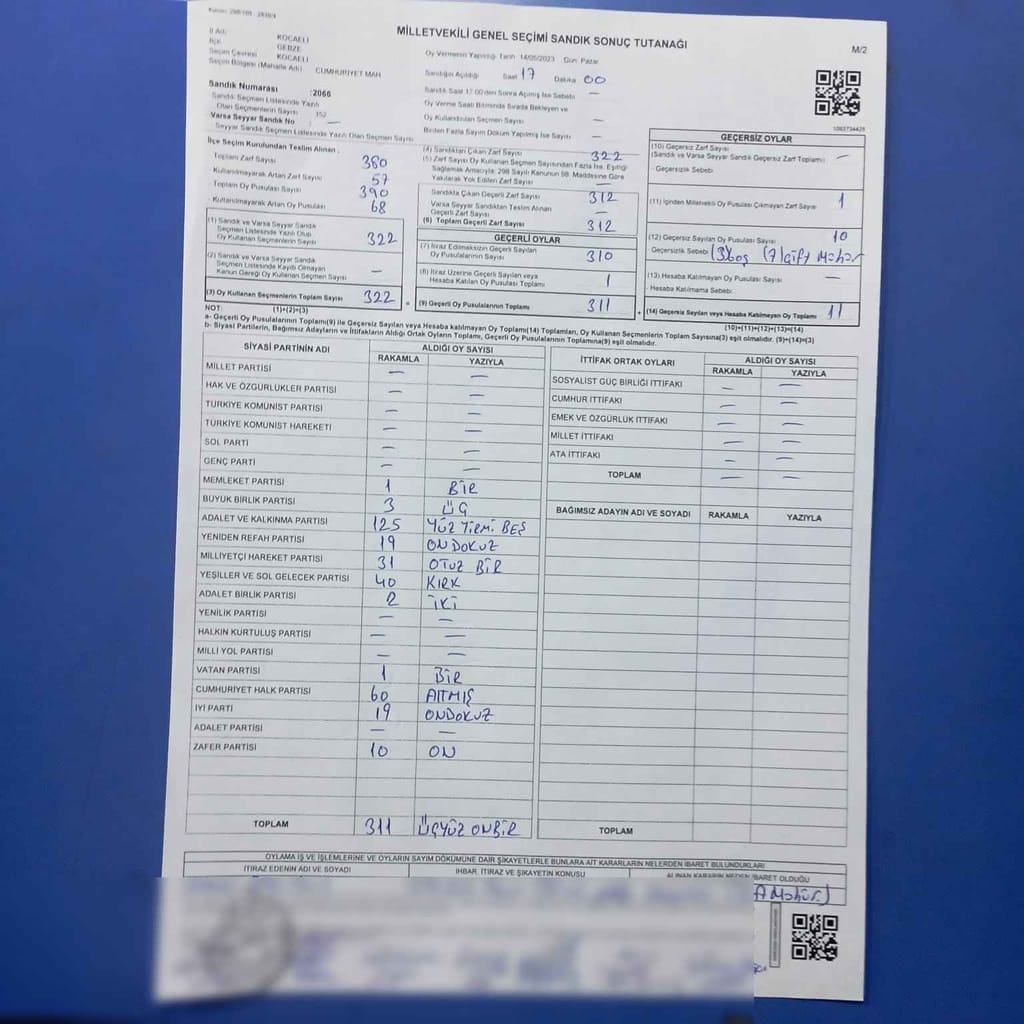 MİLLETVEKİLİ GENEL SEÇİMİ SANDIK SONUÇ TUTANAĞI
M/2
İl Adı KOCAELİ
İlçe GEBZE
Seçim Çevresi KOCAELİ
Seçim Bölgesi (Mahalle Adı) CUMHURİYET MAH
Oy Vermenin Yapıldığı Tarih 14/05/2023 Gün: Pazar
Sandığın Açıldığı Saat 17 Dakika 00
Sandık Saat 17:00'den Sonra Açılmış İse Sebebi —
Oy Verme Saati Bitiminde Sırada Bekleyen ve
Oy Kullandırılan Seçmen Sayısı —
Birden Fazla Sayım Döküm Yapılmış İse Sayısı —
Sandık Numarası :2066
Sandık Seçmen Listesinde Yazılı
Olan Seçmenlerin Sayısı 352
Varsa Seyyar Sandık No —
Seyyar Sandık Seçmen Listesinde Yazılı Olan Seçmen Sayısı
İlçe Seçim Kurulundan Teslim Alınan :
Toplam Zarf Sayısı 380
Kullanılmayarak Artan Zarf Sayısı 57
Toplam Oy Pusulası Sayısı 390
Kullanılmayarak Artan Oy Pusulası 68
(1) Sandık ve Varsa Seyyar Sandık
Seçmen Listesinde Yazılı Olup
Oy Kullanan Seçmenlerin Sayısı 322
(2) Sandık ve Varsa Seyyar Sandık
Seçmen Listesinde Kayıtlı Olmayan
Kanun Gereği Oy Kullanan Seçmen Sayısı —
(3) Oy Kullanan Seçmenlerin Toplam Sayısı 322
(1)+(2)=(3)
(4) Sandıktan Çıkan Zarf Sayısı 322
(5) Zarf Sayısı Oy Kullanan Seçmen Sayısından Fazla İse, Eşitliği
Sağlamak Amacıyla, 298 Sayılı Kanunun 98. Maddesine Göre
Yakılarak Yok Edilen Zarf Sayısı —
Sandıkta Çıkan Geçerli Zarf Sayısı 312
Varsa Seyyar Sandıktan Teslim Alınan
Geçerli Zarf Sayısı —
(6) Toplam Geçerli Zarf Sayısı 312
GEÇERLİ OYLAR
(7) İtiraz Edilmeksizin Geçerli Sayılan
Oy Pusulalarının Sayısı 310
(8) İtiraz Üzerine Geçerli Sayılan veya
Hesaba Katılan Oy Pusulası Sayısı 1
(9) Geçerli Oy Pusulalarının Toplamı 311
1062734428
GEÇERSİZ OYLAR
(10) Geçersiz Zarf Sayısı
(Sandık ve Varsa Seyyar Sandık Geçersiz Zarf Toplamı) —
- Geçersizlik Sebebi
(11) İçinden Milletvekili Oy Pusulası Çıkmayan Zarf Sayısı 1
(12) Geçersiz Sayılan Oy Pusulası Sayısı 10
Geçersizlik Sebebi (3)Boş (7)Çift Mühür
(13) Hesaba Katılmayan Oy Pusulası Sayısı —
- Hesaba Katılmama Sebebi
(14) Geçersiz Sayılan veya Hesaba Katılmayan Oy Toplamı 11
(10)+(11)+(12)+(13)=(14)
NOT:
a- Geçerli Oy Pusulalarının Toplamı(9) ile Geçersiz Sayılan veya Hesaba katılmayan Oy Toplamı(14) Toplamları, Oy Kullanan Seçmenlerin Toplam Sayısına(3) eşit olmalıdır. (9)+(14)=(3)
b- Siyasi Partilerin, Bağımsız Adayların ve İttifakların Aldığı Ortak Oyların Toplamı, Geçerli Oy Pusulalarının Toplamına(9) eşit olmalıdır.
SİYASİ PARTİNİN ADI ALDIĞI OY SAYISI
RAKAMLA YAZIYLA
MİLLET PARTİSİ — —
HAK VE ÖZGÜRLÜKLER PARTİSİ — —
TÜRKİYE KOMÜNİST PARTİSİ — —
TÜRKİYE KOMÜNİST HAREKETİ — —
SOL PARTİ — —
GENÇ PARTİ — —
MEMLEKET PARTİSİ 1 BİR
BÜYÜK BİRLİK PARTİSİ 3 ÜÇ
ADALET VE KALKINMA PARTİSİ 125 YÜZ YİRMİ BEŞ
YENİDEN REFAH PARTİSİ 19 ONDOKUZ
MİLLİYETÇİ HAREKET PARTİSİ 31 OTUZ BİR
YEŞİLLER VE SOL GELECEK PARTİSİ 40 KIRK
ADALET BİRLİK PARTİSİ 2 İKİ
YENİLİK PARTİSİ — —
HALKIN KURTULUŞ PARTİSİ — —
MİLLİ YOL PARTİSİ — —
VATAN PARTİSİ 1 BİR
CUMHURİYET HALK PARTİSİ 60 ALTMIŞ
İYİ PARTİ 19 ONDOKUZ
ADALET PARTİSİ — —
ZAFER PARTİSİ 10 ON
TOPLAM 311 ÜÇYÜZ ONBİR
İTTİFAK ORTAK OYLARI ALDIĞI OY SAYISI
RAKAMLA YAZIYLA
SOSYALİST GÜÇ BİRLİĞİ İTTİFAKI — —
CUMHUR İTTİFAKI — —
EMEK VE ÖZGÜRLÜK İTTİFAKI — —
MİLLET İTTİFAKI — —
ATA İTTİFAKI — —
TOPLAM — —
BAĞIMSIZ ADAYIN ADI VE SOYADI RAKAMLA YAZIYLA
TOPLAM
OYLAMA İŞ VE İŞLEMLERİNE VE OYLARIN SAYIM DÖKÜMÜNE DAİR ŞİKAYETLERLE BUNLARA AİT KARARLARIN NELERDEN İBARET BULUNDUKLARI
İTİRAZ EDENİN ADI VE SOYADI İHBAR, İTİRAZ VE ŞİKAYETİN KONUSU ALINAN KARARIN NEDEN İBARET OLDUĞU
Mühür)